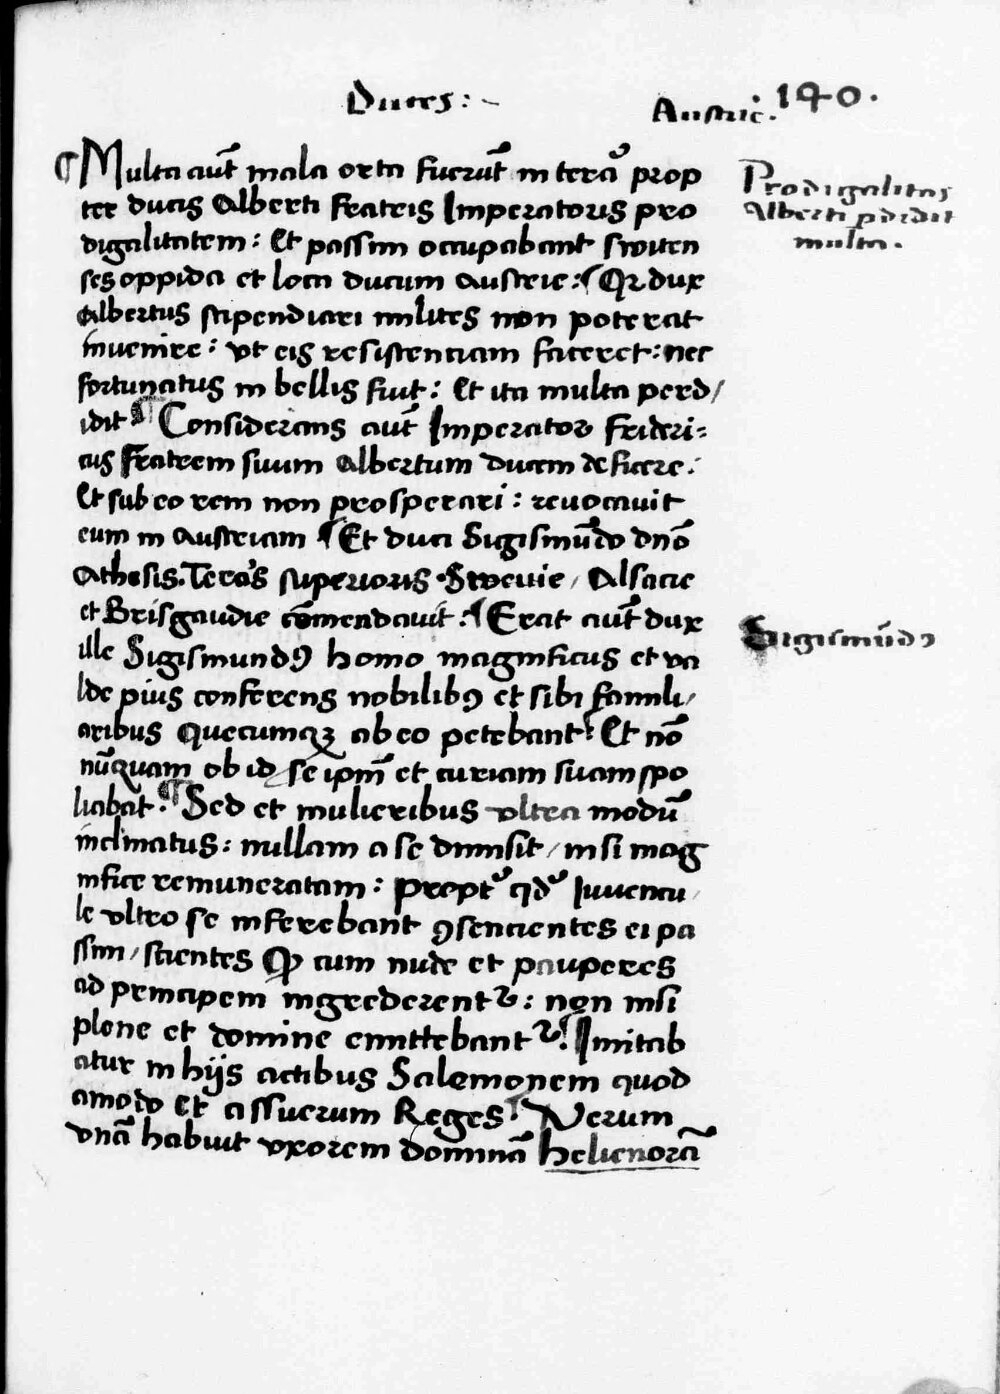 Duces :~
Austrie.
.140.
¶ Multa aut̄ mala orta fuerūt in terra᷒ prop
ter ducis Alberti fratris Imperatoris pro
digalitatem : Et passim occupabant switen
ses oppida et loca ducum Austrie : ¶ Qz dux
Albertus stipendiari milites non poterat
invenire : vt eis resistenciam faceret : nec
fortunatus in bellis fuit : Et ita multa perd/
idit ¶ Considerans aut̄ Imperator frideri=
cus fratrem suum Albertum ducem deficere :
Et sub eo rem non prosperari : revocavit
eum in Austriam ¶ Et duci Sigismūdo dn̄o
Athesis. Terra᷒s superioris . Swevie / Alsacie
et Brisgaudie cōmendavit : ¶ Erat aut̄ dux
ille Sigismundꝰ homo magnificus et va
lde pius conferens nobilibꝰ et sibi famili/
aribus quecumqꝫ ab eo petebant : Et nō
nūquam ob id se ipm̄ et curiam suam spo
liabat . ¶ Sed et mulieribus vltra modū
inclinatus : nullam a se dimisit / nisi mag
nifice remuneratam : propt᷒ qd᷒ Iuvencu /
le vltro se inferebant ꝯsencientes ei pa
ssim / scientes Qꝫ cum nude et pauperes
ad principem ingrederent᷒ : non nisi
plene et domine emittebant᷒ : Imitab
atur in hijs actibus Salemonem quod
amodo et assuerum Reges : Verum
vnā habuit vxorem dominā helienorā
Prodigalitas
Alberti ꝑdidit
multa .
Sigismūdꝰ